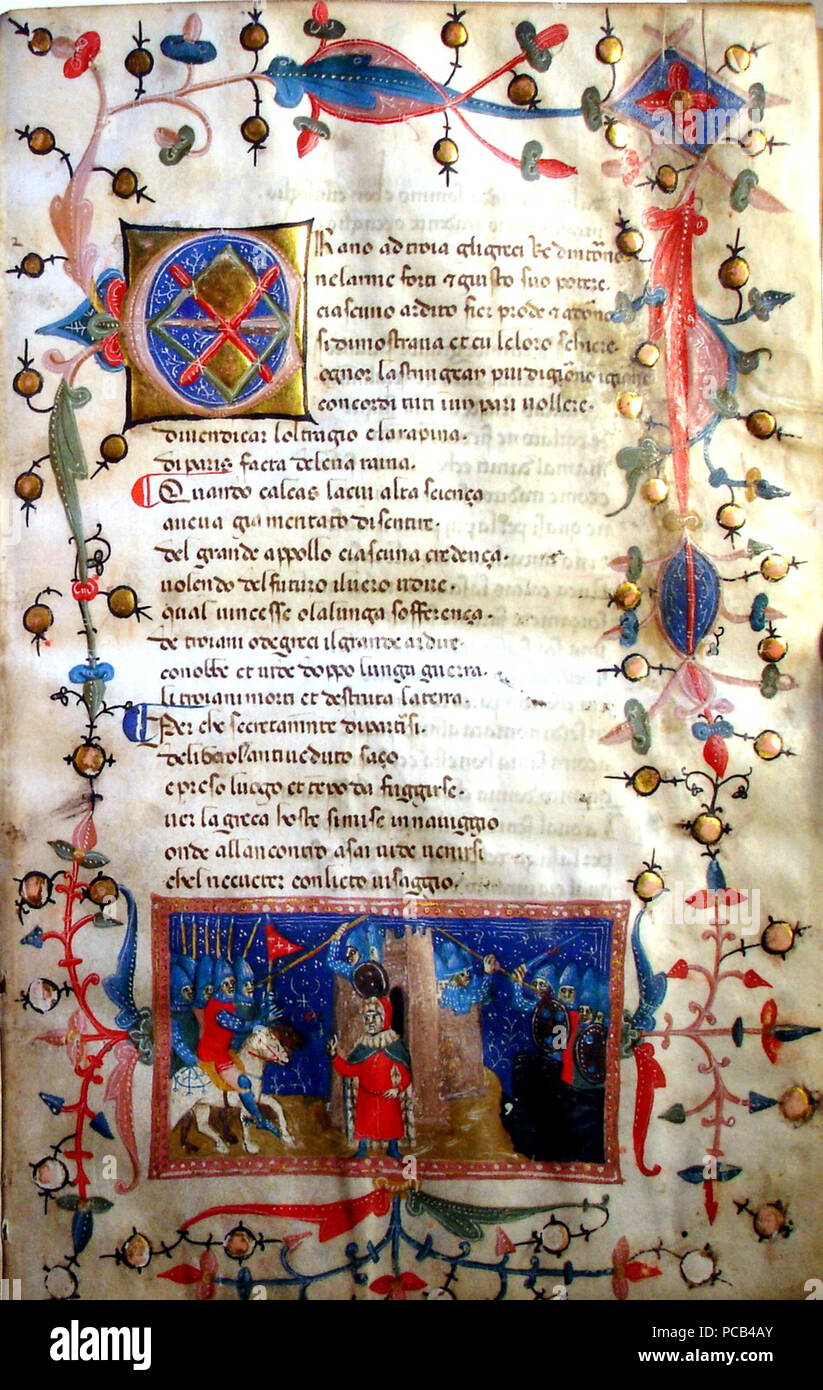 ERano ad troia gli greci Re dintōno
nelarme forti & giusto suo potere.
ciascuno ardito fier prode & adōno
si dimostraua et cū leloro schiere
ognor la stringean piu di giōno
concordi tuti in un pari uollere.
diuendicar loltragio e la rapina.
di paris facta delena raina.
Quando calcas lacui alta sciença
aueua gia mentato di sentire.
del grande appollo ciascuna credença.
uolendo del futuro iluero udire.
qual uincesse o la lunga sofferença.
de troiani o de greci il grande ardire
conobbe et uide doppo lunga guerra.
li troiani morti et destruta la terra.
Per che secretamīte dipartirsi.
delibero lantiueduto saço
e preso luogo et tēpo da fuggirse.
uer la greca hoste si mise in nauiggio
onde allancontro asai uide uenirsi
chel receueter con lieto uisaggio.
alamy
PCB4AY
www.alamy.com